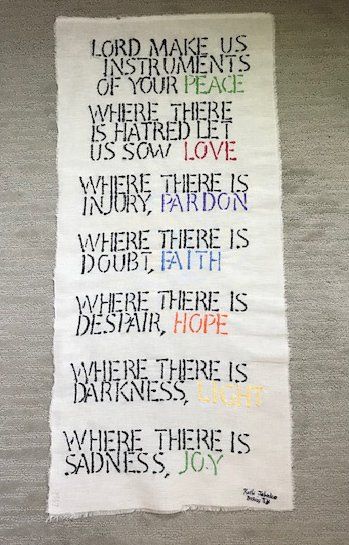 LORD MAKE US
INSTRUMENTS
OF YOUR PEACE
WHERE THERE
IS HATRED LET
US SOW LOVE
WHERE THERE IS
INJURY, PARDON
WHERE THERE IS
DOUBT, FAITH
WHERE THERE IS
DESPAIR, HOPE
WHERE THERE IS
DARKNESS, LIGHT
WHERE THERE IS
SADNESS, JOY